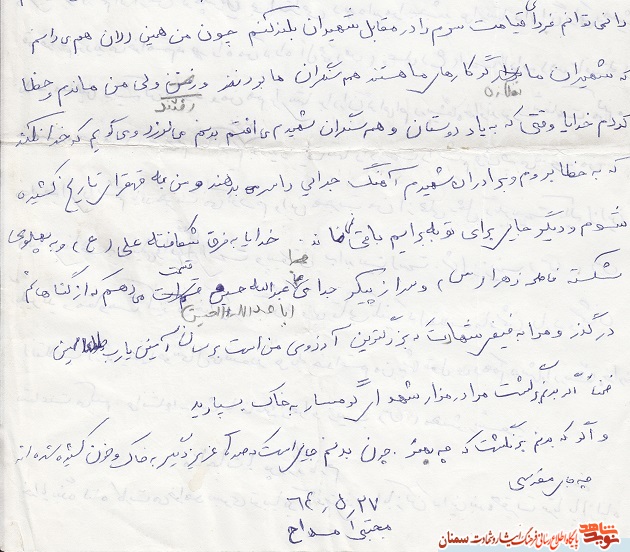 دانم نمی‌توانم فردای قیامت سرم را در مقابل شهیدان بلند کنم چون من همین الان هم می‌دانم
که شهیدان ما نظاره گر کارهای ما هستند هم سنگران ما بودند و رفتند ولی من ماندم و خطا
کردم خدایا وقتی که به یاد دوستان و هم سنگران شهیدم می افتم بدنم می‌لرزد و می‌گویم که خدا نکند
که به خطا بروم و برادران شهیدم آهنگ جدایی را سر بدهند و من به قهقرای تاریخ کشیده
شوم و دیگر جایی برای توبه برایم باقی نماند. خدایا به فرق شکافته علی (ع) و به پهلوی
شکسته فاطمه زهرا (س) و سر از پیکر جدای ابا عبدالله الحسین قسمت می‌دهم که از گناهانم
در گذر و مرا به فیض شهادت که بزرگترین آرزوی من است برسان آمین یا رب العالمین
ضمناً اگر بدنم برگشت مرا در مزار شهدای گرمسار به خاک بسپارید
و اگر که بدنم برنگشت که چه بهتر. چون بدنم جایی است که صدها عزیز دیگر به خاک و خون کشیده شده اند
چه جای مقدسی
۶۴/۵/۲۷
مجتبی امداح
شاهد
نوید
پایگاه اطلاع رسانی فرهنگ ایثار و شهادت سمنان